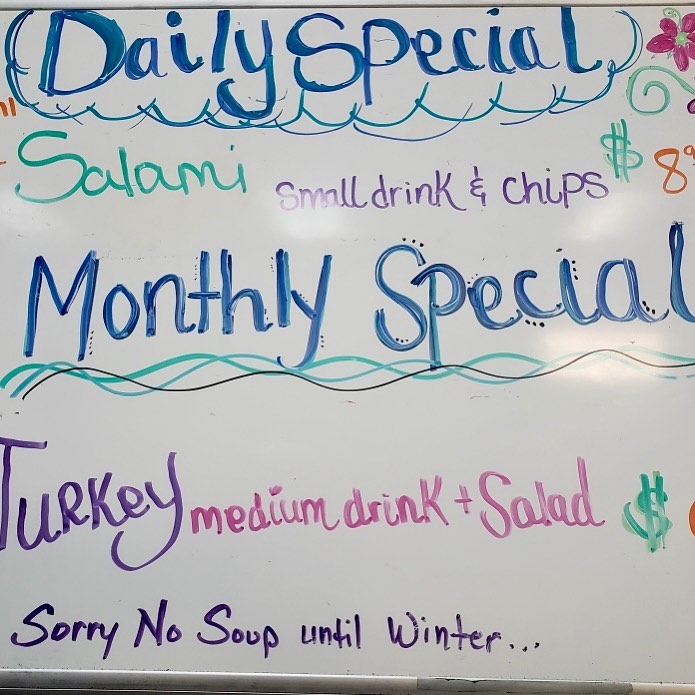 Daily Special
Salami small drink & chips $ 8
Monthly Special
Turkey medium drink + Salad $
Sorry No Soup until Winter...